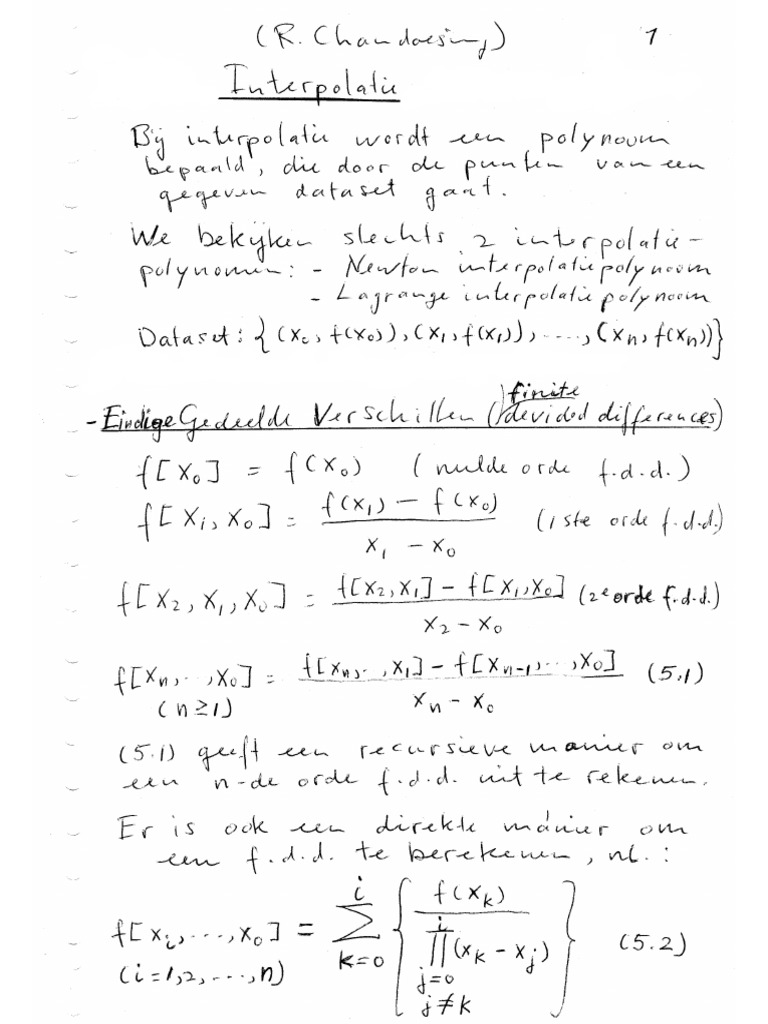 (R. Chandoesing) 1
Interpolatie
Bij interpolatie wordt een polynoom
bepaald, die door de punten van een
gegeven dataset gaat.
We bekijken slechts 2 interpolatie-
polynomen: - Newton interpolatiepolynoom
- Lagrange interpolatiepolynoom
Dataset: {(x₀, f(x₀)), (x₁, f(x₁)), ...., (xₙ, f(xₙ))}
- Eindige Gedeelde Verschillen (finite devided differences)
f[x₀] = f(x₀) (nulde orde f.d.d.)
f[x₁, x₀] = (f(x₁) - f(x₀)) / (x₁ - x₀) (1ste orde f.d.d.)
f[x₂, x₁, x₀] = (f[x₂, x₁] - f[x₁, x₀]) / (x₂ - x₀) (2e orde f.d.d.)
f[xₙ, .., x₀] = (f[xₙ, .., x₁] - f[xₙ₋₁, .., x₀]) / (xₙ - x₀) (5.1)
(n≥1)
(5.1) geeft een recursieve manier om
een n-de orde f.d.d. uit te rekenen.
Er is ook een direkte manier om
een f.d.d. te berekenen, nl.:
f[xᵢ, ..., x₀] = ∑_{k=0}^{i} { f(xₖ) / ∏_{j=0, j≠k}^{i} (xₖ - xⱼ) } (5.2)
(i=1,2,...,n)